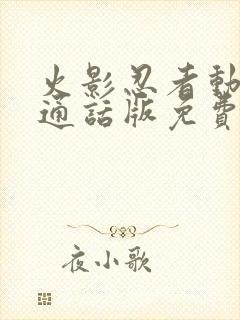 火影忍者動
通話版免費
夜小歌